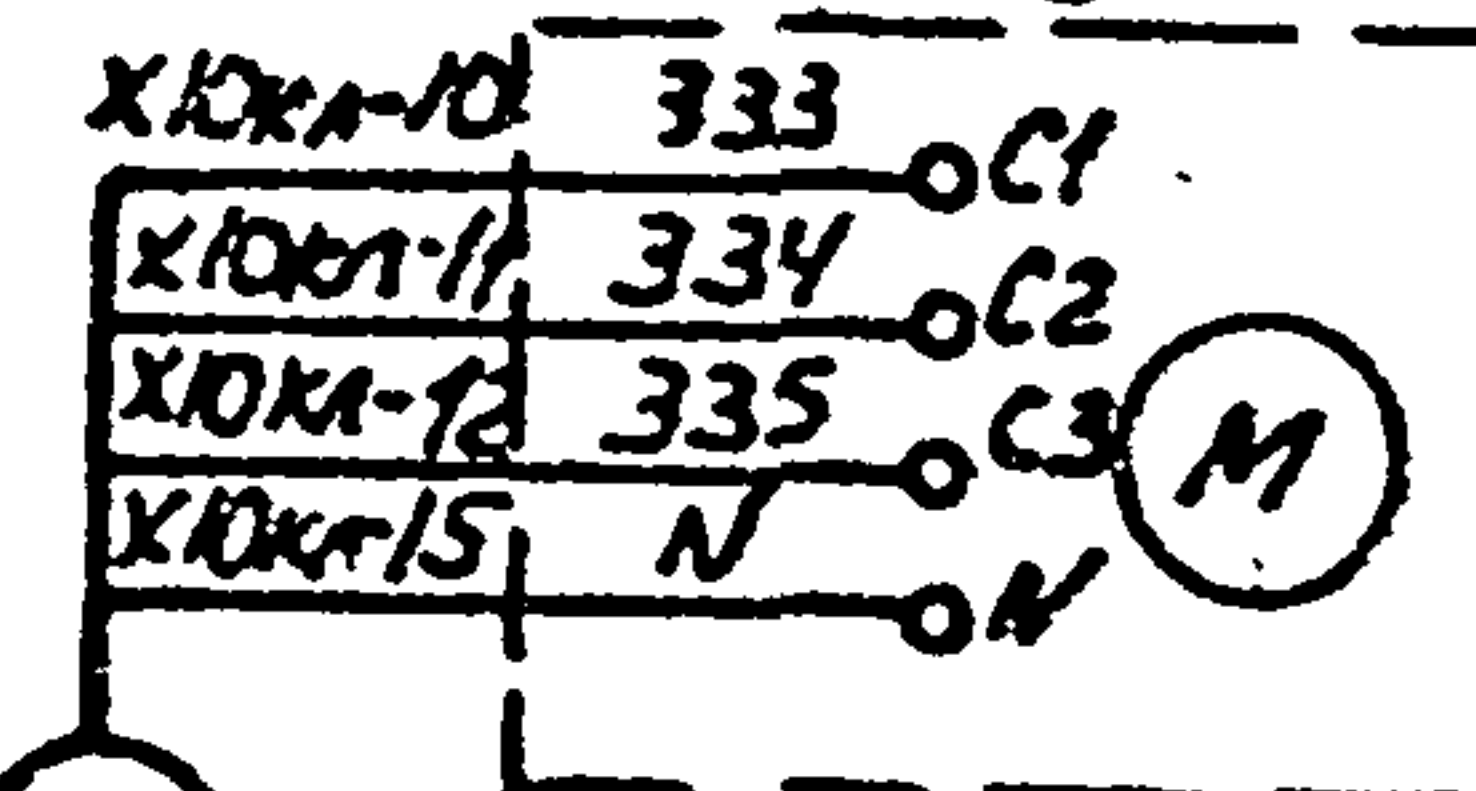 Х10кл-10 333 С1
Х10кл-11 334 С2
Х10кл-12 335 С3
М
Х10кл-15 N N